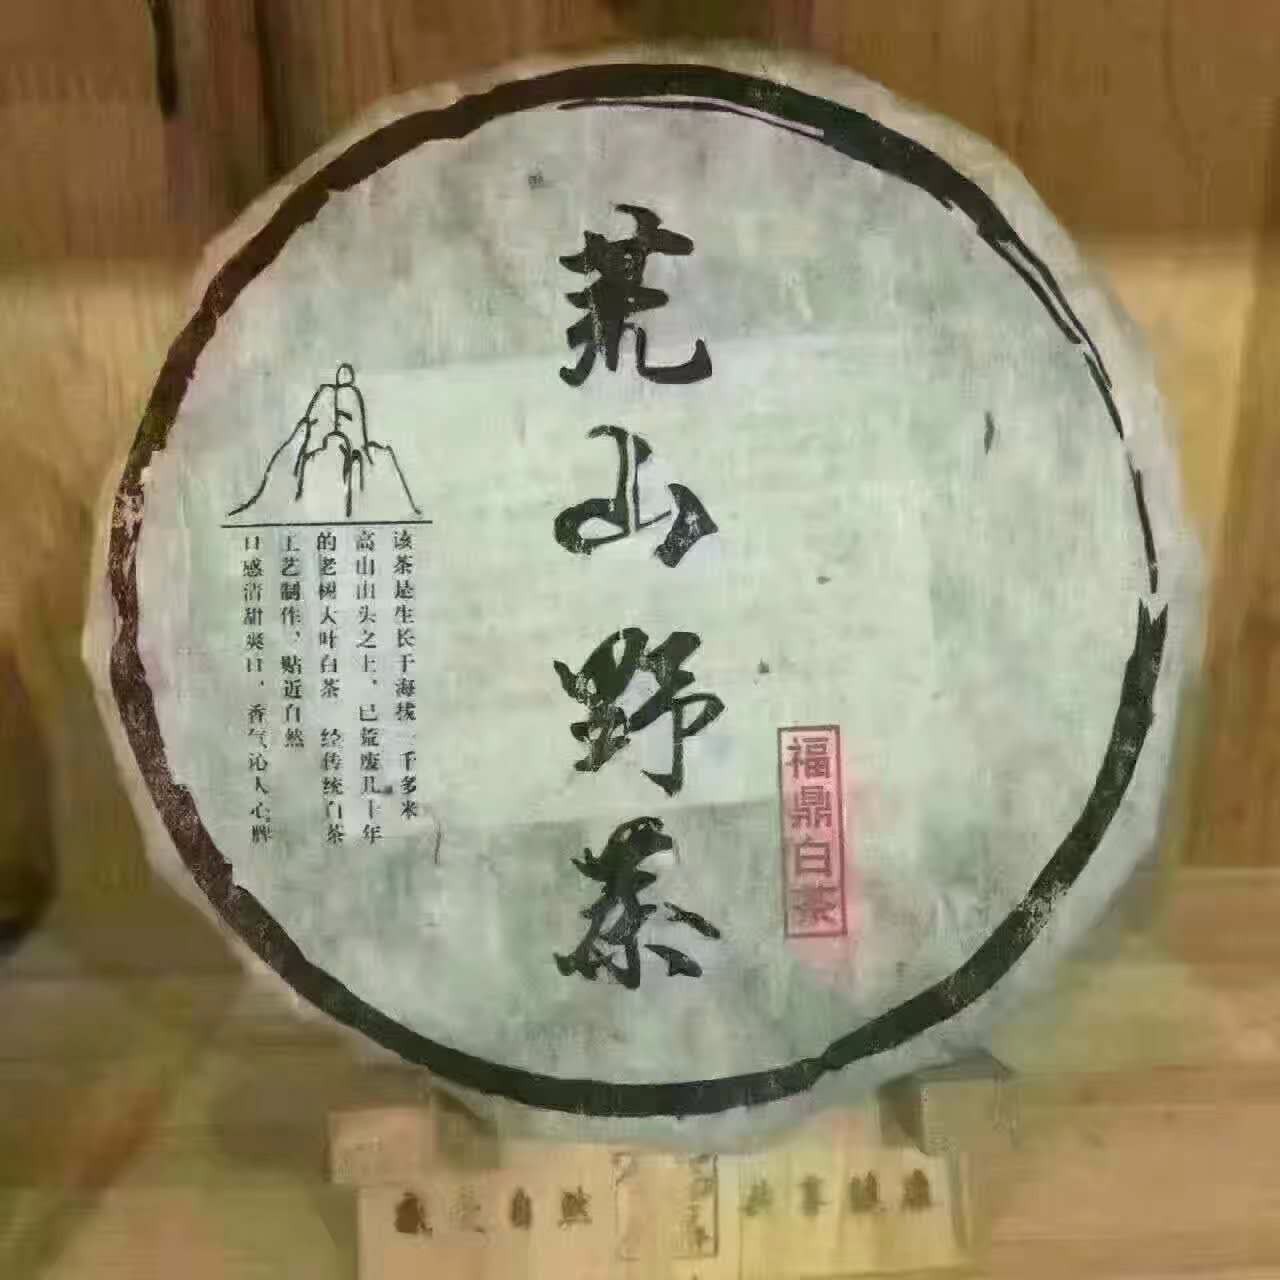 荒山野茶
福鼎白茶
该茶是生长于海拔一千多米
高山山头之上，已荒废几十年
的老树大叶白茶 经传统白茶
工艺制作，贴近自然
口感清甜爽口，香气沁人心脾
感受自然
共享健康